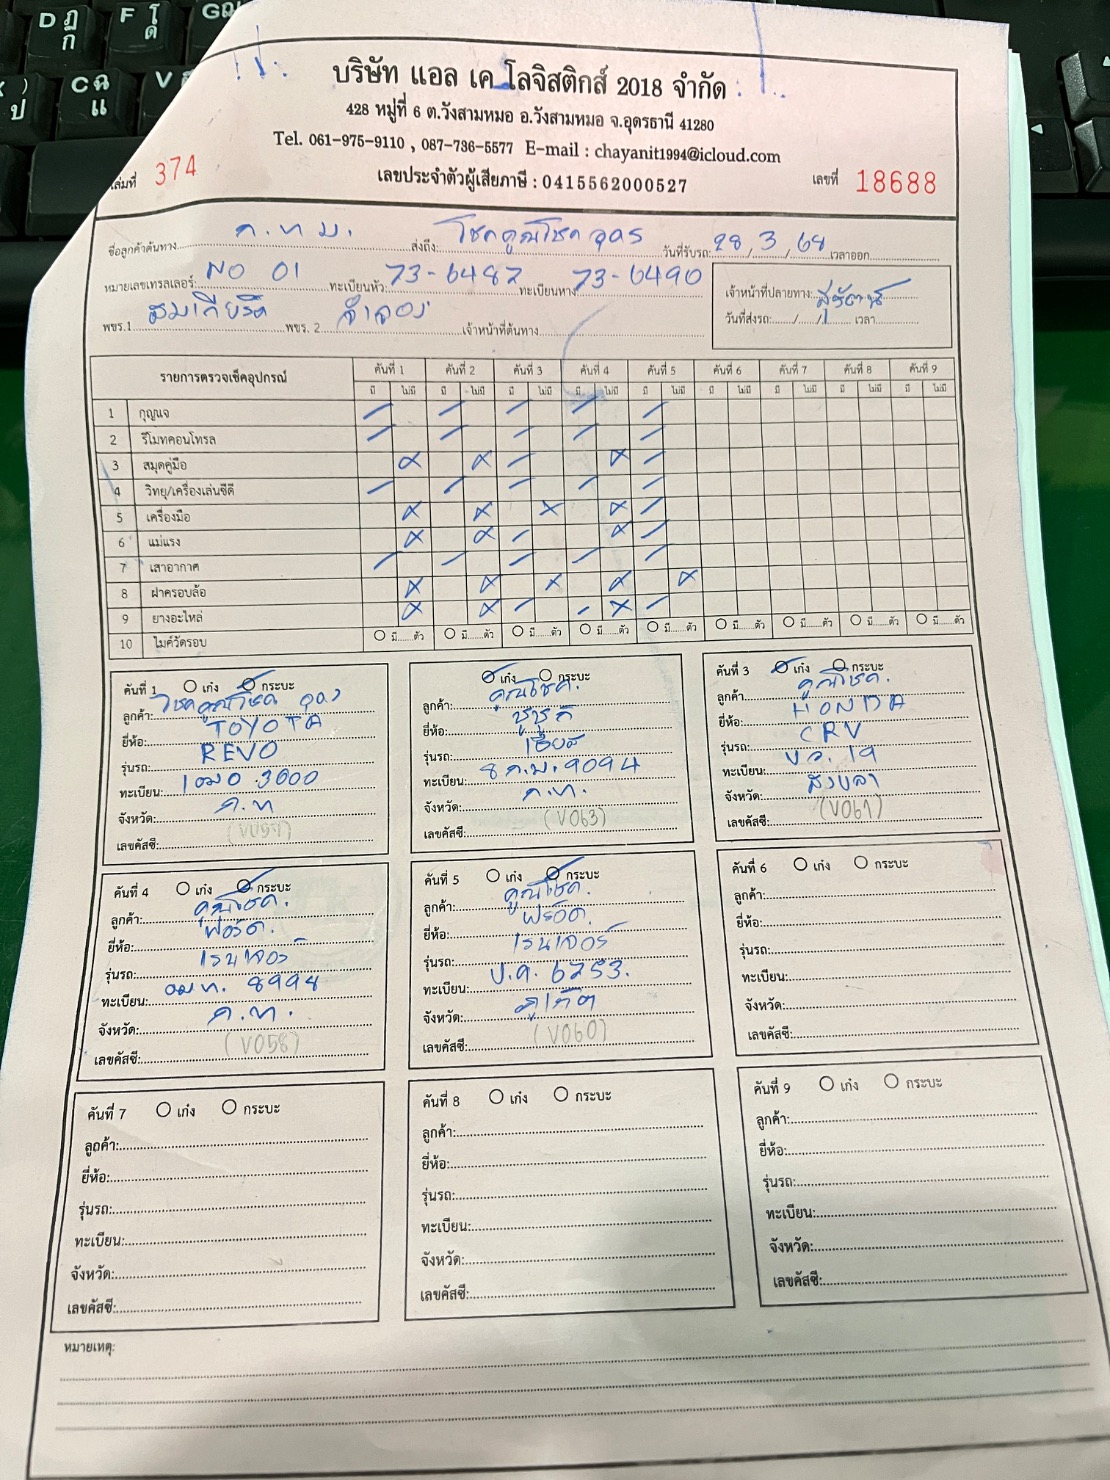 บริษัท แอล เค โลจิสติกส์ 2018 จำกัด
428 หมู่ที่ 6 ต.วังสามหมอ อ.วังสามหมอ จ.อุดรธานี 41280
Tel. 061-975-9110 , 087-736-5577 E-mail : chayanit1994@icloud.com
เล่มที่ 374 เลขประจำตัวผู้เสียภาษี : 0415562000527 เลขที่ 18688
ชื่อลูกค้าต้นทาง ก.ท.ม. ส่งถึง: โชคคูณโชค อุดร วันที่รับรถ: 28/3/68 เวลาออก
หมายเลขเทรลเลอร์: NO 01 ทะเบียนหัว: 73-6487 ทะเบียนหาง: 73-6490
เจ้าหน้าที่ปลายทาง:
พขร.1 สมเกียรติ พขร. 2 จำลอง เจ้าหน้าที่ต้นทาง
วันที่ส่งรถ: / / เวลา
รายการตรวจเช็คอุปกรณ์ คันที่ 1 คันที่ 2 คันที่ 3 คันที่ 4 คันที่ 5 คันที่ 6 คันที่ 7 คันที่ 8 คันที่ 9
มี ไม่มี มี ไม่มี มี ไม่มี มี ไม่มี มี ไม่มี มี ไม่มี มี ไม่มี มี ไม่มี มี ไม่มี
1 กุญแจ
2 รีโมทคอนโทรล
3 สมุดคู่มือ
4 วิทยุ/เครื่องเล่นซีดี
5 เครื่องมือ
6 แม่แรง
7 เสาอากาศ
8 ฝาครอบล้อ
9 ยางอะไหล่
10 ไมค์วัดรอบ มี ตัว มี ตัว มี ตัว มี ตัว มี ตัว มี ตัว มี ตัว มี ตัว มี ตัว
คันที่ 1 เก๋ง กระบะ
ลูกค้า: โชคคูณโชค อุดร
ยี่ห้อ: TOYOTA
รุ่นรถ: REVO
ทะเบียน: 1ฒอ 3000
จังหวัด: ก.ท
เลขคัสซี: (V059)
เก๋ง กระบะ
ลูกค้า: คูณโชค.
ยี่ห้อ: ซูซูกิ
รุ่นรถ:
ทะเบียน: 8 ก.ม. 9094
จังหวัด: ก.ท.
เลขคัสซี: (V063)
คันที่ 3 เก๋ง กระบะ
ลูกค้า: คูณโชค.
ยี่ห้อ: HONDA
รุ่นรถ: CRV
ทะเบียน: 19
จังหวัด: สงขลา
เลขคัสซี: (V061)
คันที่ 4 เก๋ง กระบะ
ลูกค้า: คูณโชค.
ยี่ห้อ: ฟอร์ด.
รุ่นรถ: เรนเจอร์
ทะเบียน: ฒท. 8998
จังหวัด: ก.ท.
เลขคัสซี: (V058)
คันที่ 5 เก๋ง กระบะ
ลูกค้า: คูณโชค.
ยี่ห้อ: ฟอร์ด.
รุ่นรถ: เรนเจอร์
ทะเบียน: บ.ค. 6253.
จังหวัด: ภูเก็ต
เลขคัสซี: (V060)
คันที่ 6 เก๋ง กระบะ
ลูกค้า:
ยี่ห้อ:
รุ่นรถ:
ทะเบียน:
จังหวัด:
เลขคัสซี:
คันที่ 7 เก๋ง กระบะ
ลูกค้า:
ยี่ห้อ:
รุ่นรถ:
ทะเบียน:
จังหวัด:
เลขคัสซี:
คันที่ 8 เก๋ง กระบะ
ลูกค้า:
ยี่ห้อ:
รุ่นรถ:
ทะเบียน:
จังหวัด:
เลขคัสซี:
คันที่ 9 เก๋ง กระบะ
ลูกค้า:
ยี่ห้อ:
รุ่นรถ:
ทะเบียน:
จังหวัด:
เลขคัสซี:
หมายเหตุ: